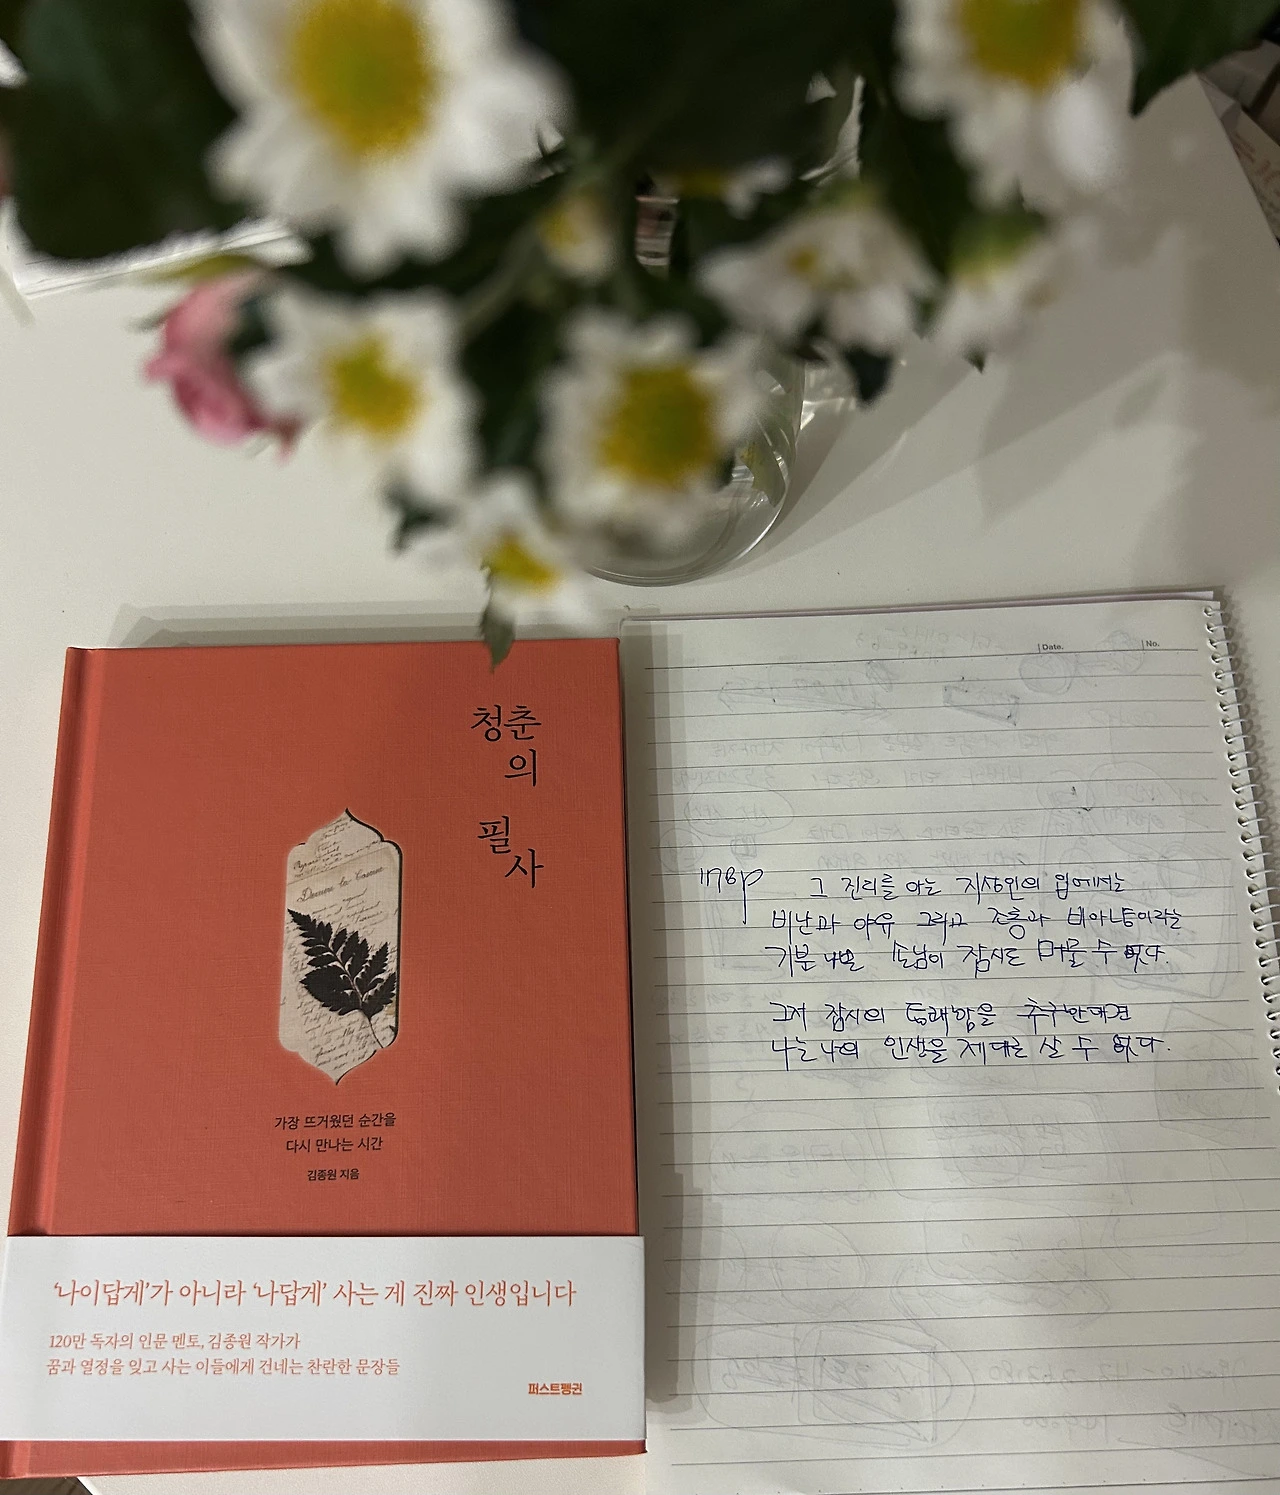 청춘
의
필
사
가장 뜨거웠던 순간을
다시 만나는 시간
김종원 지음
'나이답게'가 아니라 '나답게' 사는 게 진짜 인생입니다
120만 독자의 인문 멘토, 김종원 작가가
꿈과 열정을 잊고 사는 이들에게 건네는 찬란한 문장들
퍼스트펭귄
Date.
No.
178p 그 진리를 아는 지성인의 입에서는
비난과 야유 그리고 조롱과 비아냥이라는
기분 나쁜 손님이 잠시도 머물 수 없다.
그저 잠시의 통쾌함을 추구한다면
나는 나의 인생을 제대로 살 수 없다.